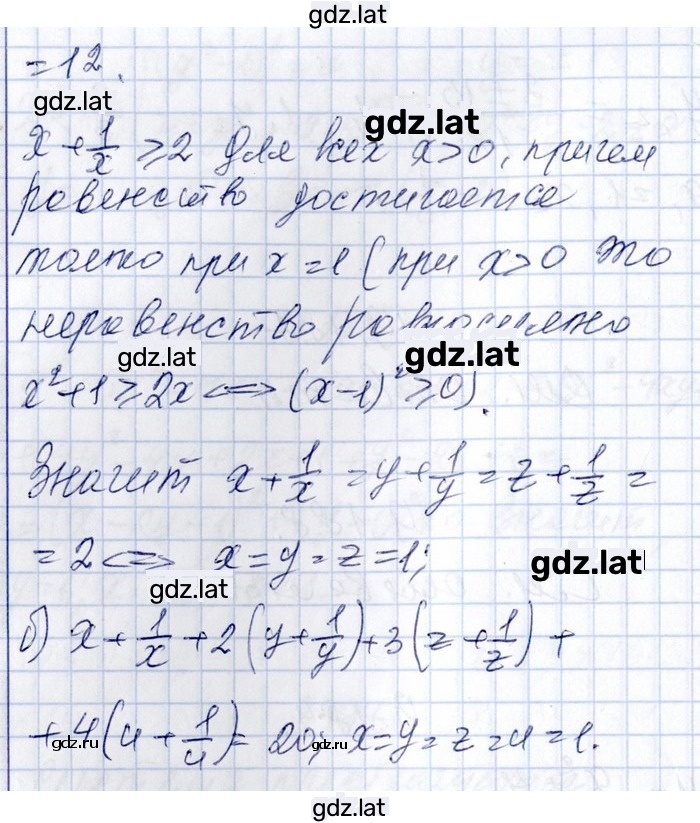 gdz.lat
= 12.
gdz.lat
gdz.lat
x + 1/x ⩾ 2 для всех x > 0, причем
равенство достигается
только при x = 1 (при x > 0 это
неравенство равносильно
gdz.lat
gdz.lat
x² + 1 ⩾ 2x <=> (x - 1)² ⩾ 0).
Значит x + 1/x = y + 1/y = z + 1/z =
= 2 <=> x = y = z = 1;
gdz.lat
gdz.lat
б) x + 1/x + 2(y + 1/y) + 3(z + 1/z) +
+ 4(u + 1/u) = 20; x = y = z = u = 1.
gdz.ru
gdz.ru
gdz.lat